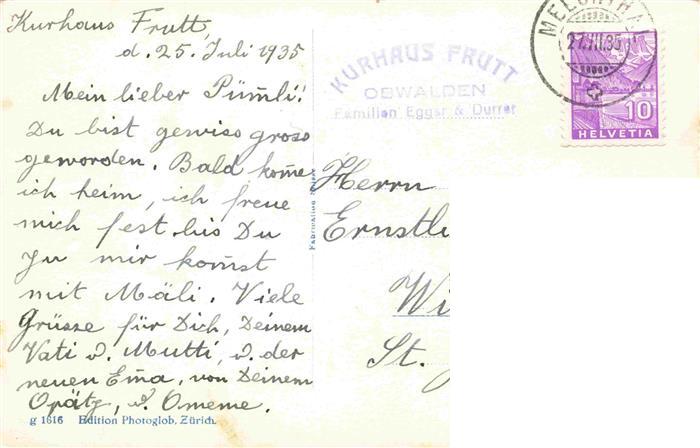 Kurhaus Frutt,
d. 25. Juli 1935
Mein lieber Pümli!
Du bist gewiss gross
geworden. Bald kom̄e
ich heim, ich freue
mich fest bis Du
zu mir kom̄st
mit Mäli. Viele
Grüsse für Dich, Deinem
Vati u. Mutti, u. der
neuen Em̄a, von Deinem
Opätz, u. Omeme.
g 1616 Edition Photoglob, Zürich.
KURHAUS FRUTT
OBWALDEN
Familien Egger & Durrer
MELCHTHAL
27.VII.35
10
HELVETIA
Fabrication Suisse
Herrn
Ernstli
Wi
St.